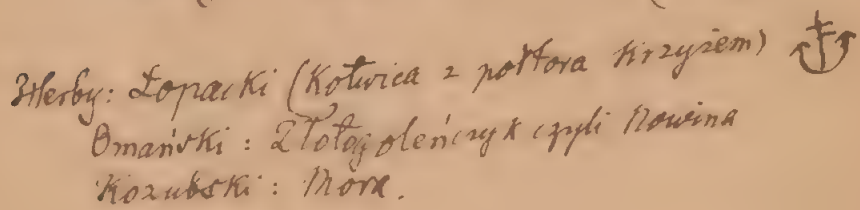 Herby: Łopacki (Kotwica z półtora krzyżem)
Omański: Złotogoleńczyk czyli Nowina
Kozubski: Mora.